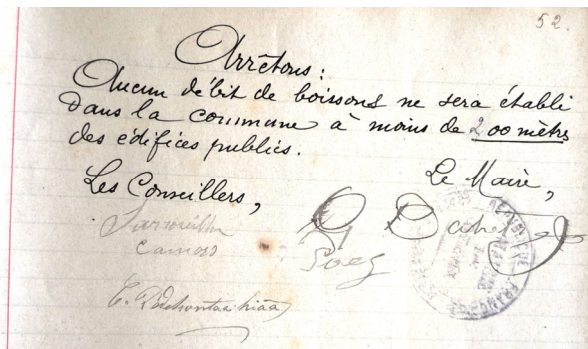 52.
Arrêtons :
Aucun débit de boissons ne sera établi
dans la commune à moins de 200 mètres
des édifices publics.
Les Conseillers,
Le Maire,
Camors